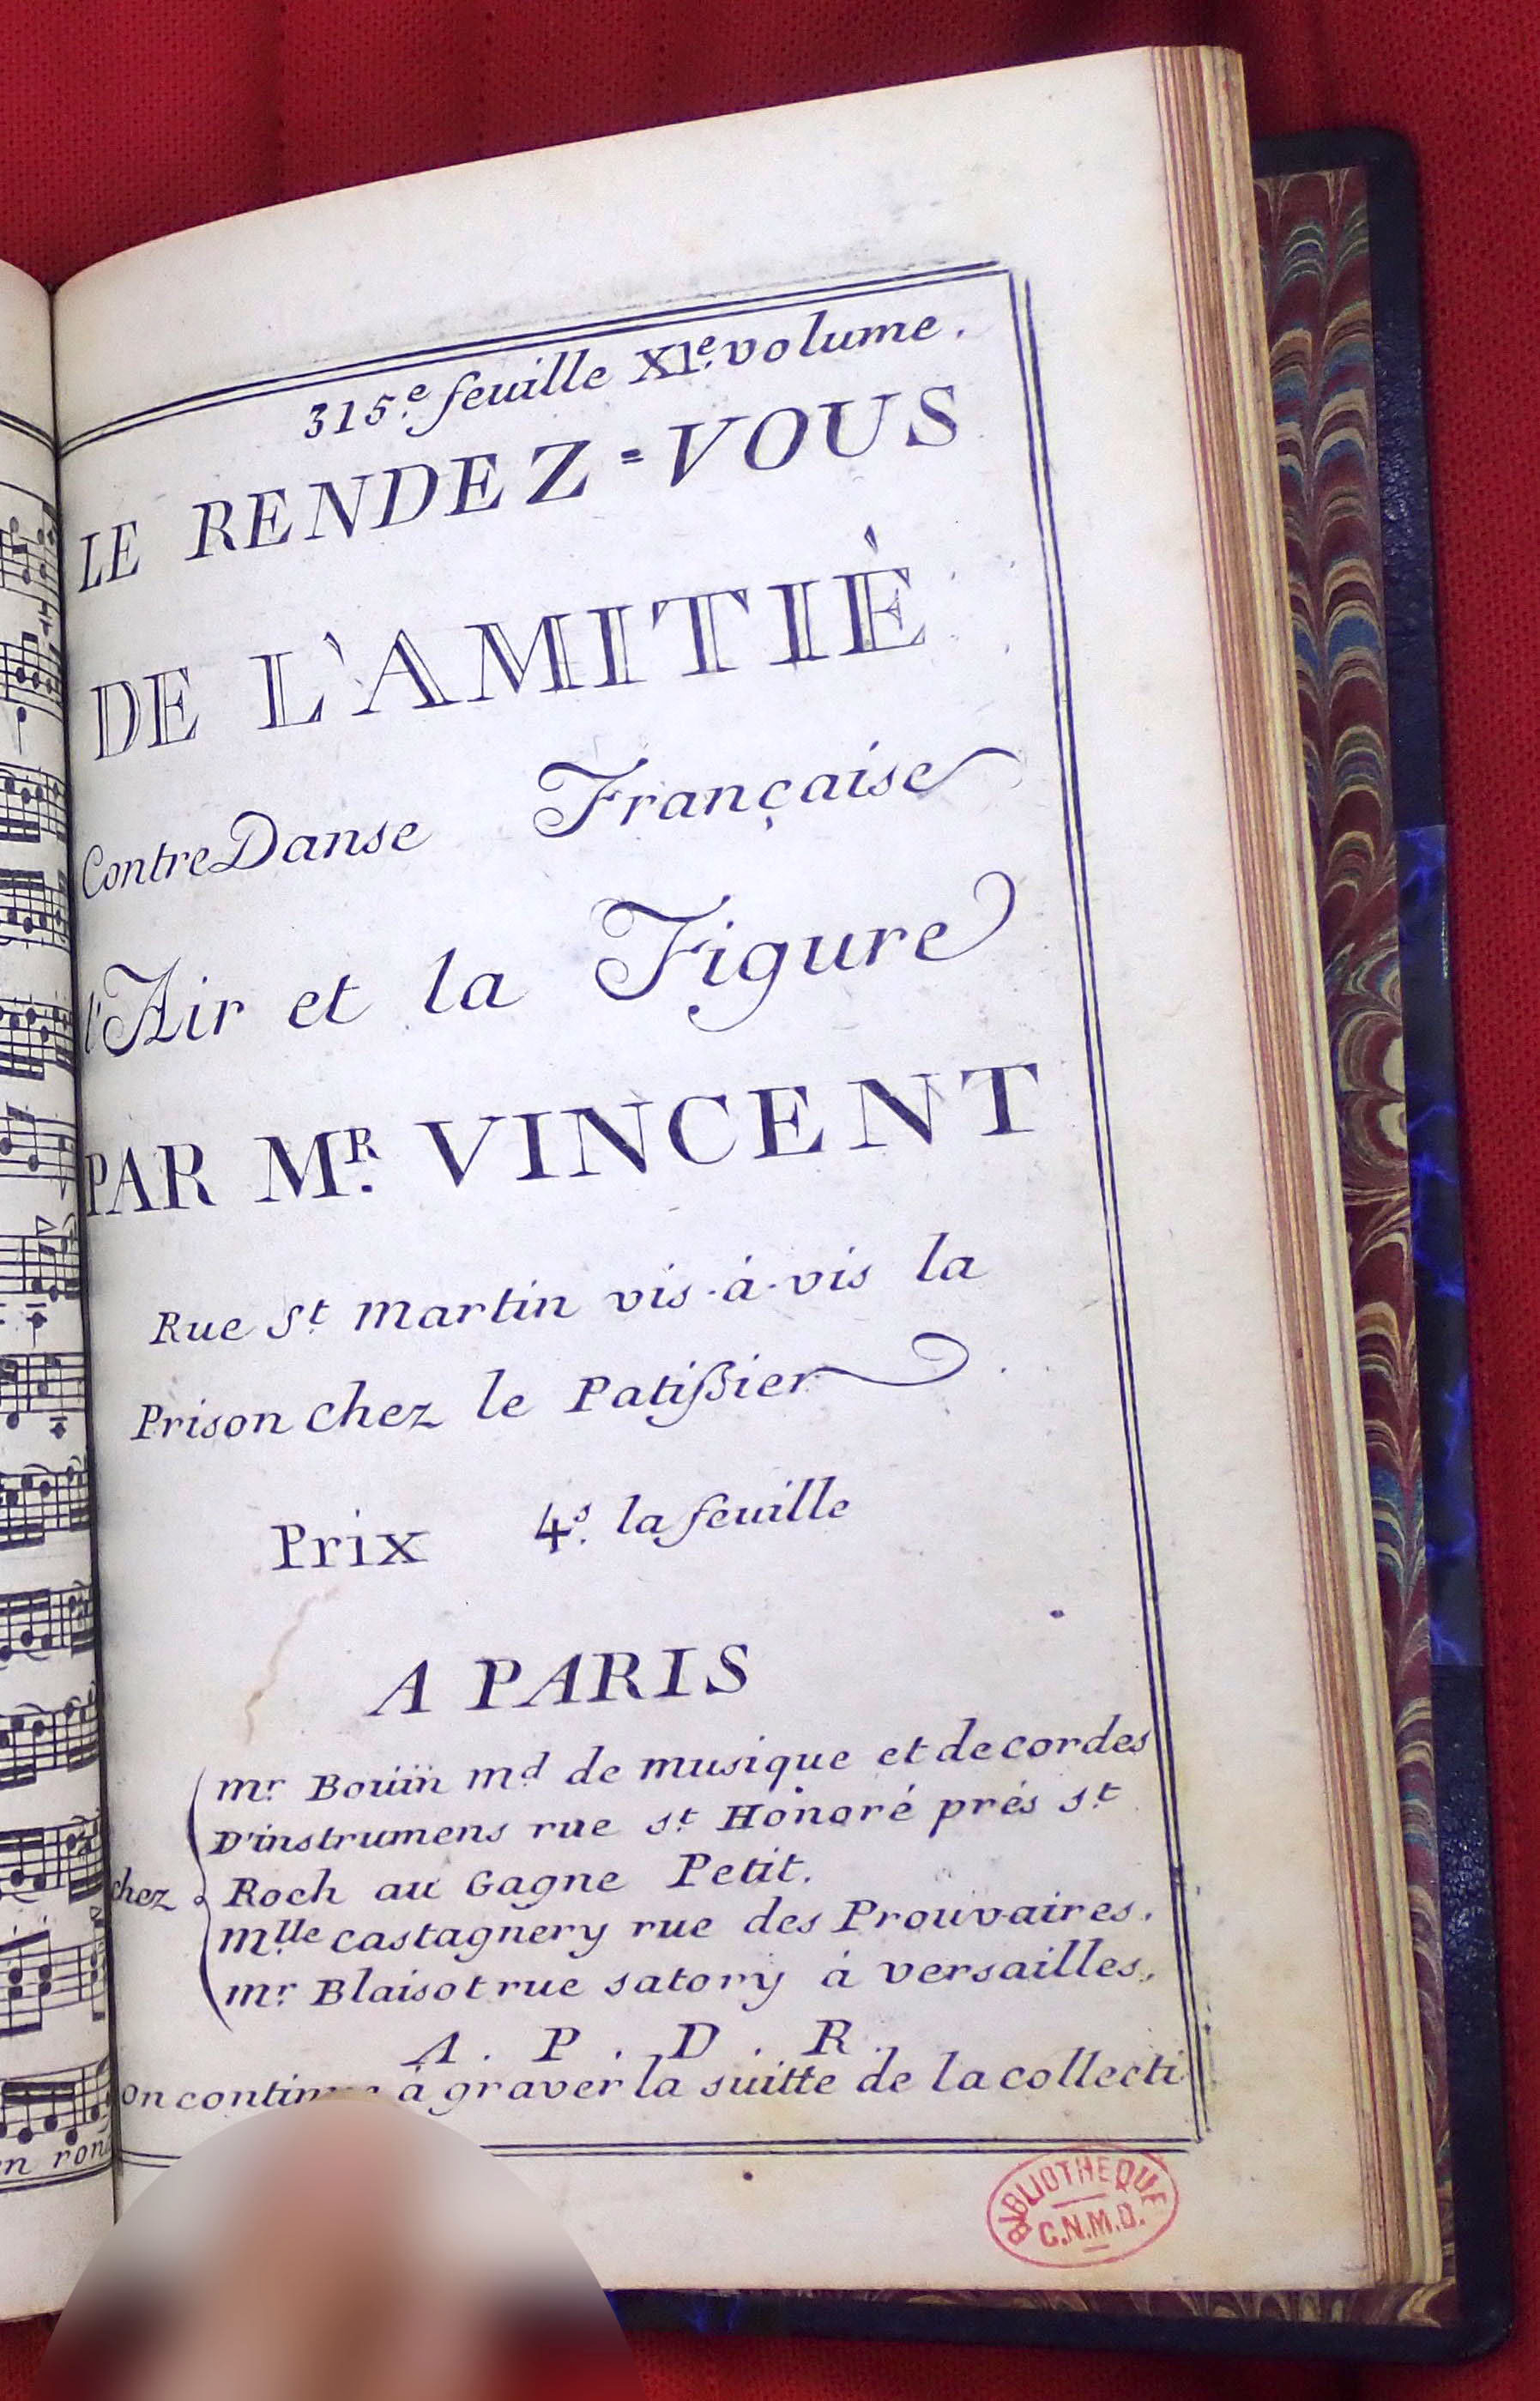 315.e feuille XI.e volume.
LE RENDEZ=VOUS
DE L'AMITIÉ
ContreDanse Française
l'Air et la Figure
PAR M.R VINCENT
Rue St martin vis-à-vis la
Prison chez le Patißier
Prix 4.s la feuille
A PARIS
mr. Boüin md de musique et de cordes
D'instrumens rue st. Honoré prés st
chez Roch au Gagne Petit.
mlle castagnery rue des Prouvaires.
mr. Blaisot rue satory à versailles.
A . P . D . R .
on à graver la suitte de la collecti
BIBLIOTHEQUE
C.N.M.D.